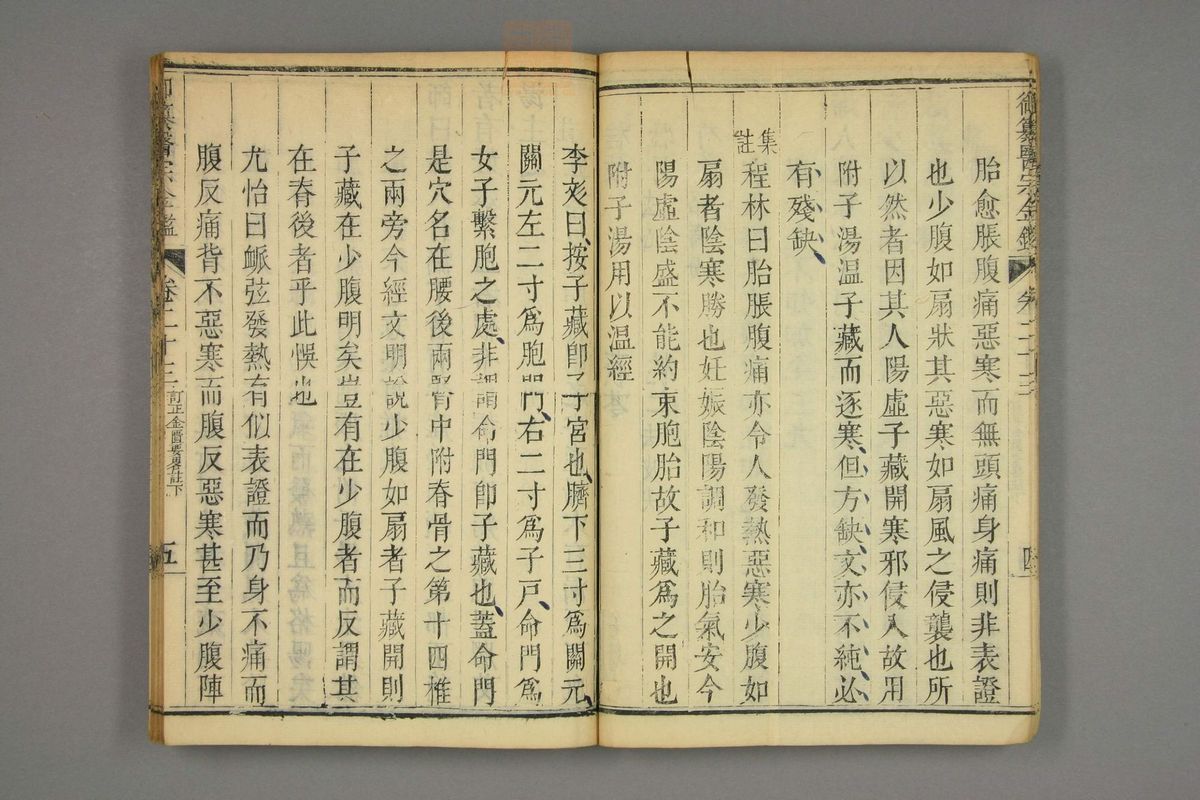 御纂醫宗金鑑 卷二十三 四
胎愈脹腹痛惡寒而無頭痛身痛則非表證
也少腹如扇狀其惡寒如扇風之侵襲也所
以然者因其人陽虛子藏開寒邪侵入故用
附子湯溫子藏而逐寒但方缺文亦不純必
有殘缺
集註 程林曰胎脹腹痛亦令人發熱惡寒少腹如
扇者陰寒勝也妊娠陰陽調和則胎氣安今
陽虛陰盛不能約束胞胎故子藏爲之開也
附子湯用以溫經
李彣曰按子藏卽子宮也臍下三寸爲關元
關元左二寸爲胞門右二寸爲子戸命門爲
女子繫胞之處非謂命門卽子藏也蓋命門
是穴名在腰後兩腎中附脊骨之第十四椎
之兩旁今經文明說少腹如扇者子藏開則
子藏在少腹明矣豈有在少腹者而反謂其
在脊後者乎此悞也
尤怡曰脈弦發熱有似表證而乃身不痛而
腹反痛背不惡寒而腹反惡寒甚至少腹陣
御纂醫宗金鑑 卷二十三 訂正金匱要畧註下 五